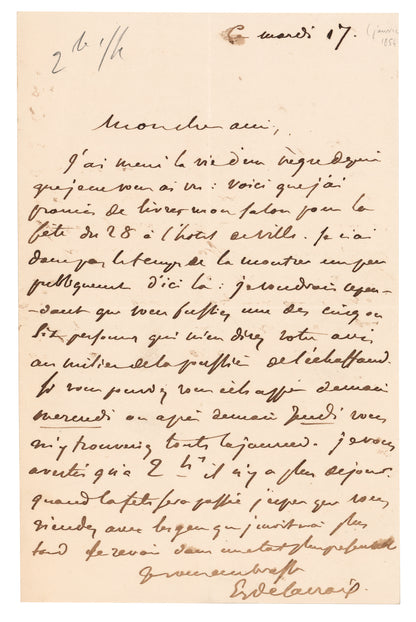 Ce mardi 17.
2 h 1/2
Mon cher ami,
J'ai mené la vie d'un nègre depuis
que je ne vous ai vu : voici que j'ai
promis de livrer mon salon pour la
fête du 28 à l'hôtel de Ville. Je n'ai
donc pas le temps de le montrer un peu
publiquement d'ici là : je voudrais cepen-
-dant que vous fussiez une des cinq ou
six personnes qui m'en direz votre avis
au milieu de la poussière de l'échaffaud.
Si vous pouvez vous échapper demain
mercredi ou après demain Jeudi vous
m'y trouverez toute la journée. je vous
avertis qu'à 2 h il n'y a plus de jour.
quand la fête sera passée j'espère que vous
viendrez avec les gens que j'inviterai plus
tard le revoir dans un état plus présentable
Je vous embrasse
Eg Delacroix.